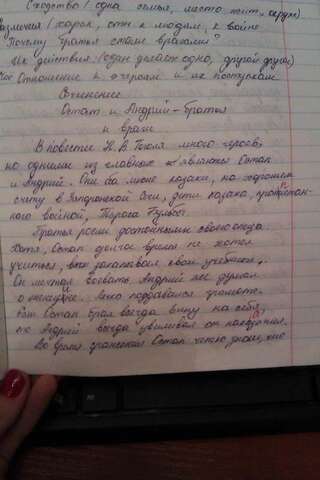 Сходство (одна семья, место жит., окруж)
Различия (харак, отн к людям, к войне
Почему братья стали врагами?
Их действия (один делает одно, другой другое)
Отношение к героям и их поступкам
Сочинение
Остап и Андрий – братья
и враги
В повести Н. В. Гоголя много героев,
но одними из главных являются Остап
и Андрий. Они оба казаки, на хорошем
счету в Запорожской Сечи, дети казака,
ного войной, Тараса Бульбы.
Братья росли достойными своего отца.
Хотя, Остап долгое время не хотел
учиться, закапывал свои учебники,
Он мечтал воевать. Андрий же думал
о легко поддавался грамоте.
Остап брал всегда вину на себя,
но Андрий всегда увиливал от наказания.
Во время сражения Остап четко знал, что